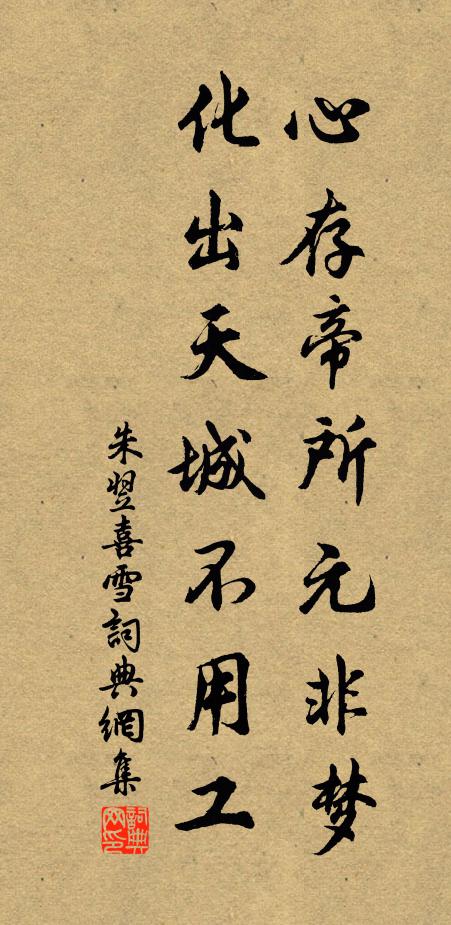 心存帝所元非梦
化出天城不用工
朱翌喜雪詞典網集
詞典网印